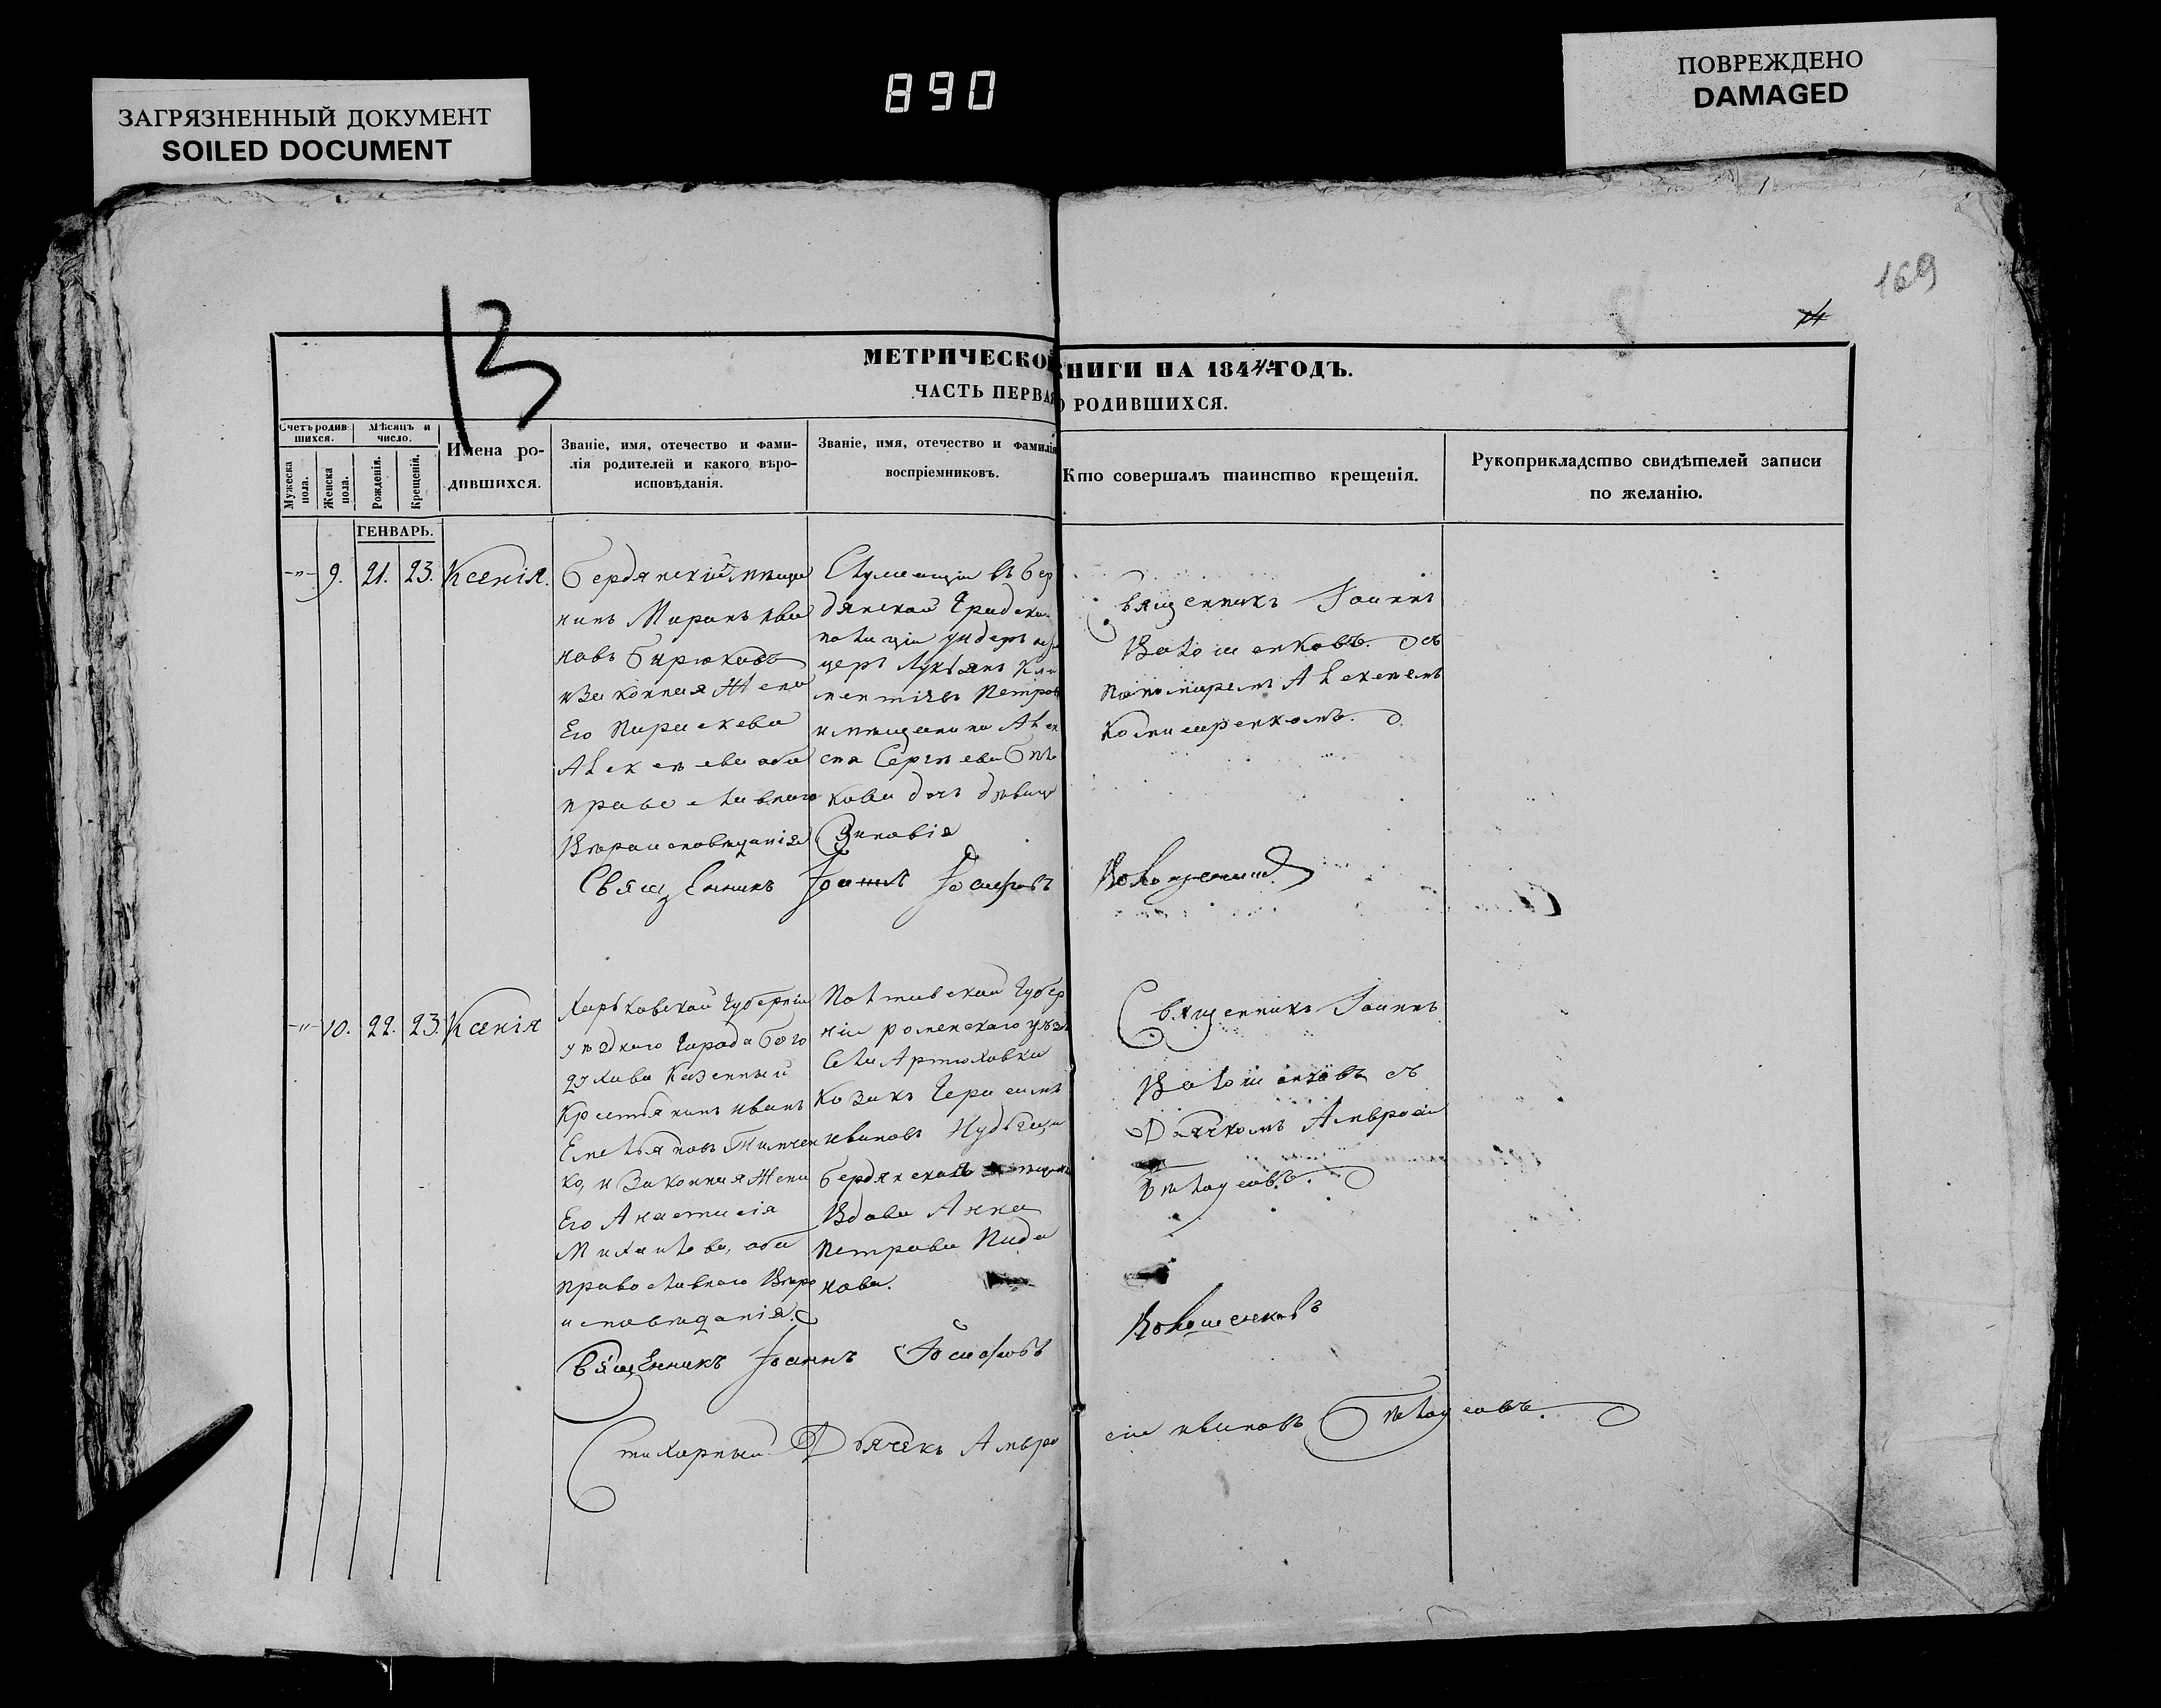 ЗАГРЯЗНЕННЫЙ ДОКУМЕНТ
SOILED DOCUMENT
890
ПОВРЕЖДЕНО
DAMAGED
169
13
МЕТРИЧЕСКОЙ КНИГИ НА 1844 ГОДЪ.
ЧАСТЬ ПЕРВАЯ О РОДИВШИХСЯ.
Счетъ родив-
шихся.
Мужеска
пола.
Женска
пола.
Мѣсяцъ и
число.
Рожденія.
Крещенія.
Имена ро-
дившихся.
Званіе, имя, отечество и фами-
лія родителей и какого вѣро-
исповѣданія.
Званіе, имя, отечество и фамилія
воспріемниковъ.
Кто совершалъ таинство крещенія.
Рукоприкладство свидѣтелей записи
по желанію.
ГЕНВАРЬ.
-"- 9. 21. 23. Ксенія.
Бердянскій мѣща
нинъ Миронъ Ива
новъ Бирюковъ
и Законная Жена
Его Параскева
Алексѣева оба
православнаго
Вѣроисповѣданія
Служащій въ Бер
дянской Градской
полиціи ундеръ
церъ Лукьянъ Кли
ментіевъ Петров
и мѣщанина Алек
сѣя Сергѣева Бѣл
кова дочь дѣвица
Зиновія
Священникъ Іоаннъ
Волошенковъ съ
Пономаремъ Алексѣемъ
Священникъ Іоаннъ Іосифовъ Волошенковъ
-"- 10. 22. 23. Ксенія
Харьковской Губерніи
уѣзднаго Города Бого
духова Казенный
Крестьянинъ Иванъ
Емельяновъ
ко, и Законная Жена
Его Анастасія
Михайлова, оба
православнаго Вѣро
исповѣданія.
Полтавской Губер
ніи роменскаго уѣзда
Села Артюховки
Козакъ Герасимъ
Ивановъ
Бердянская
Вдова Анна
Петрова
нова.
Священникъ Іоаннъ
Волошенковъ съ
Дьячкомъ Амвросіем
Бѣлоусовъ.
Священникъ Іоаннъ Іосифовъ Волошенковъ
Стихарный Дьячекъ Амвросій Ивановъ Бѣлоусовъ.